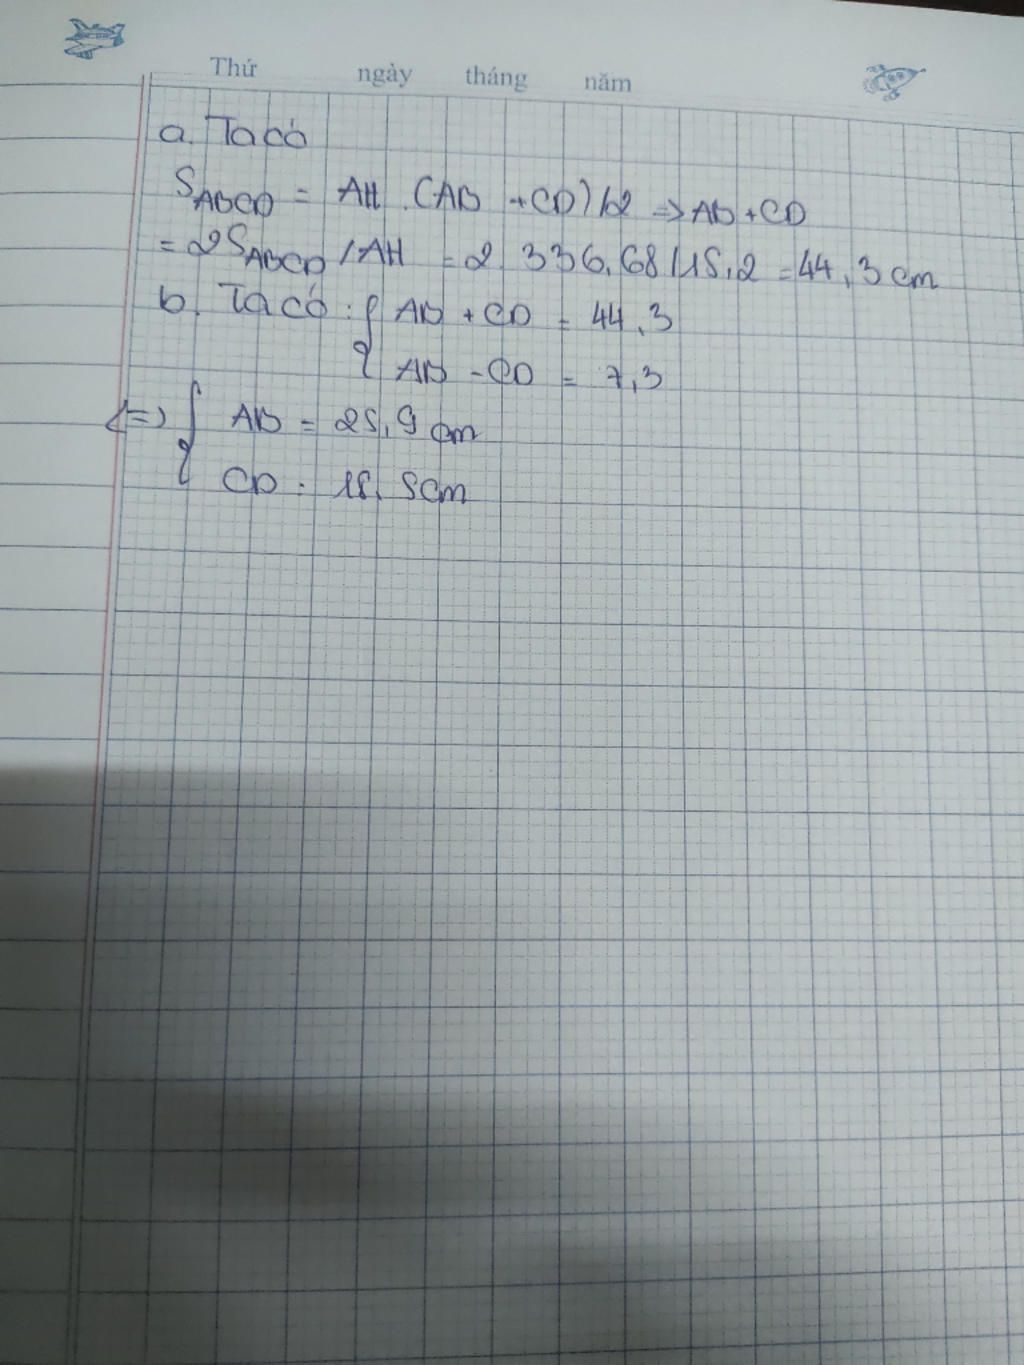 Thứ ngày tháng năm
a. Ta có
S ABCD = AH . (AB + CD) / 2 => AB + CD
= 2 S ABCD / AH = 2 . 336,68 / 15,2 = 44,3 cm
b. Ta có : { AB + CD = 44,3
AB - CD = 7,3
<=> { AB = 25,9 cm
CD = 18,5 cm